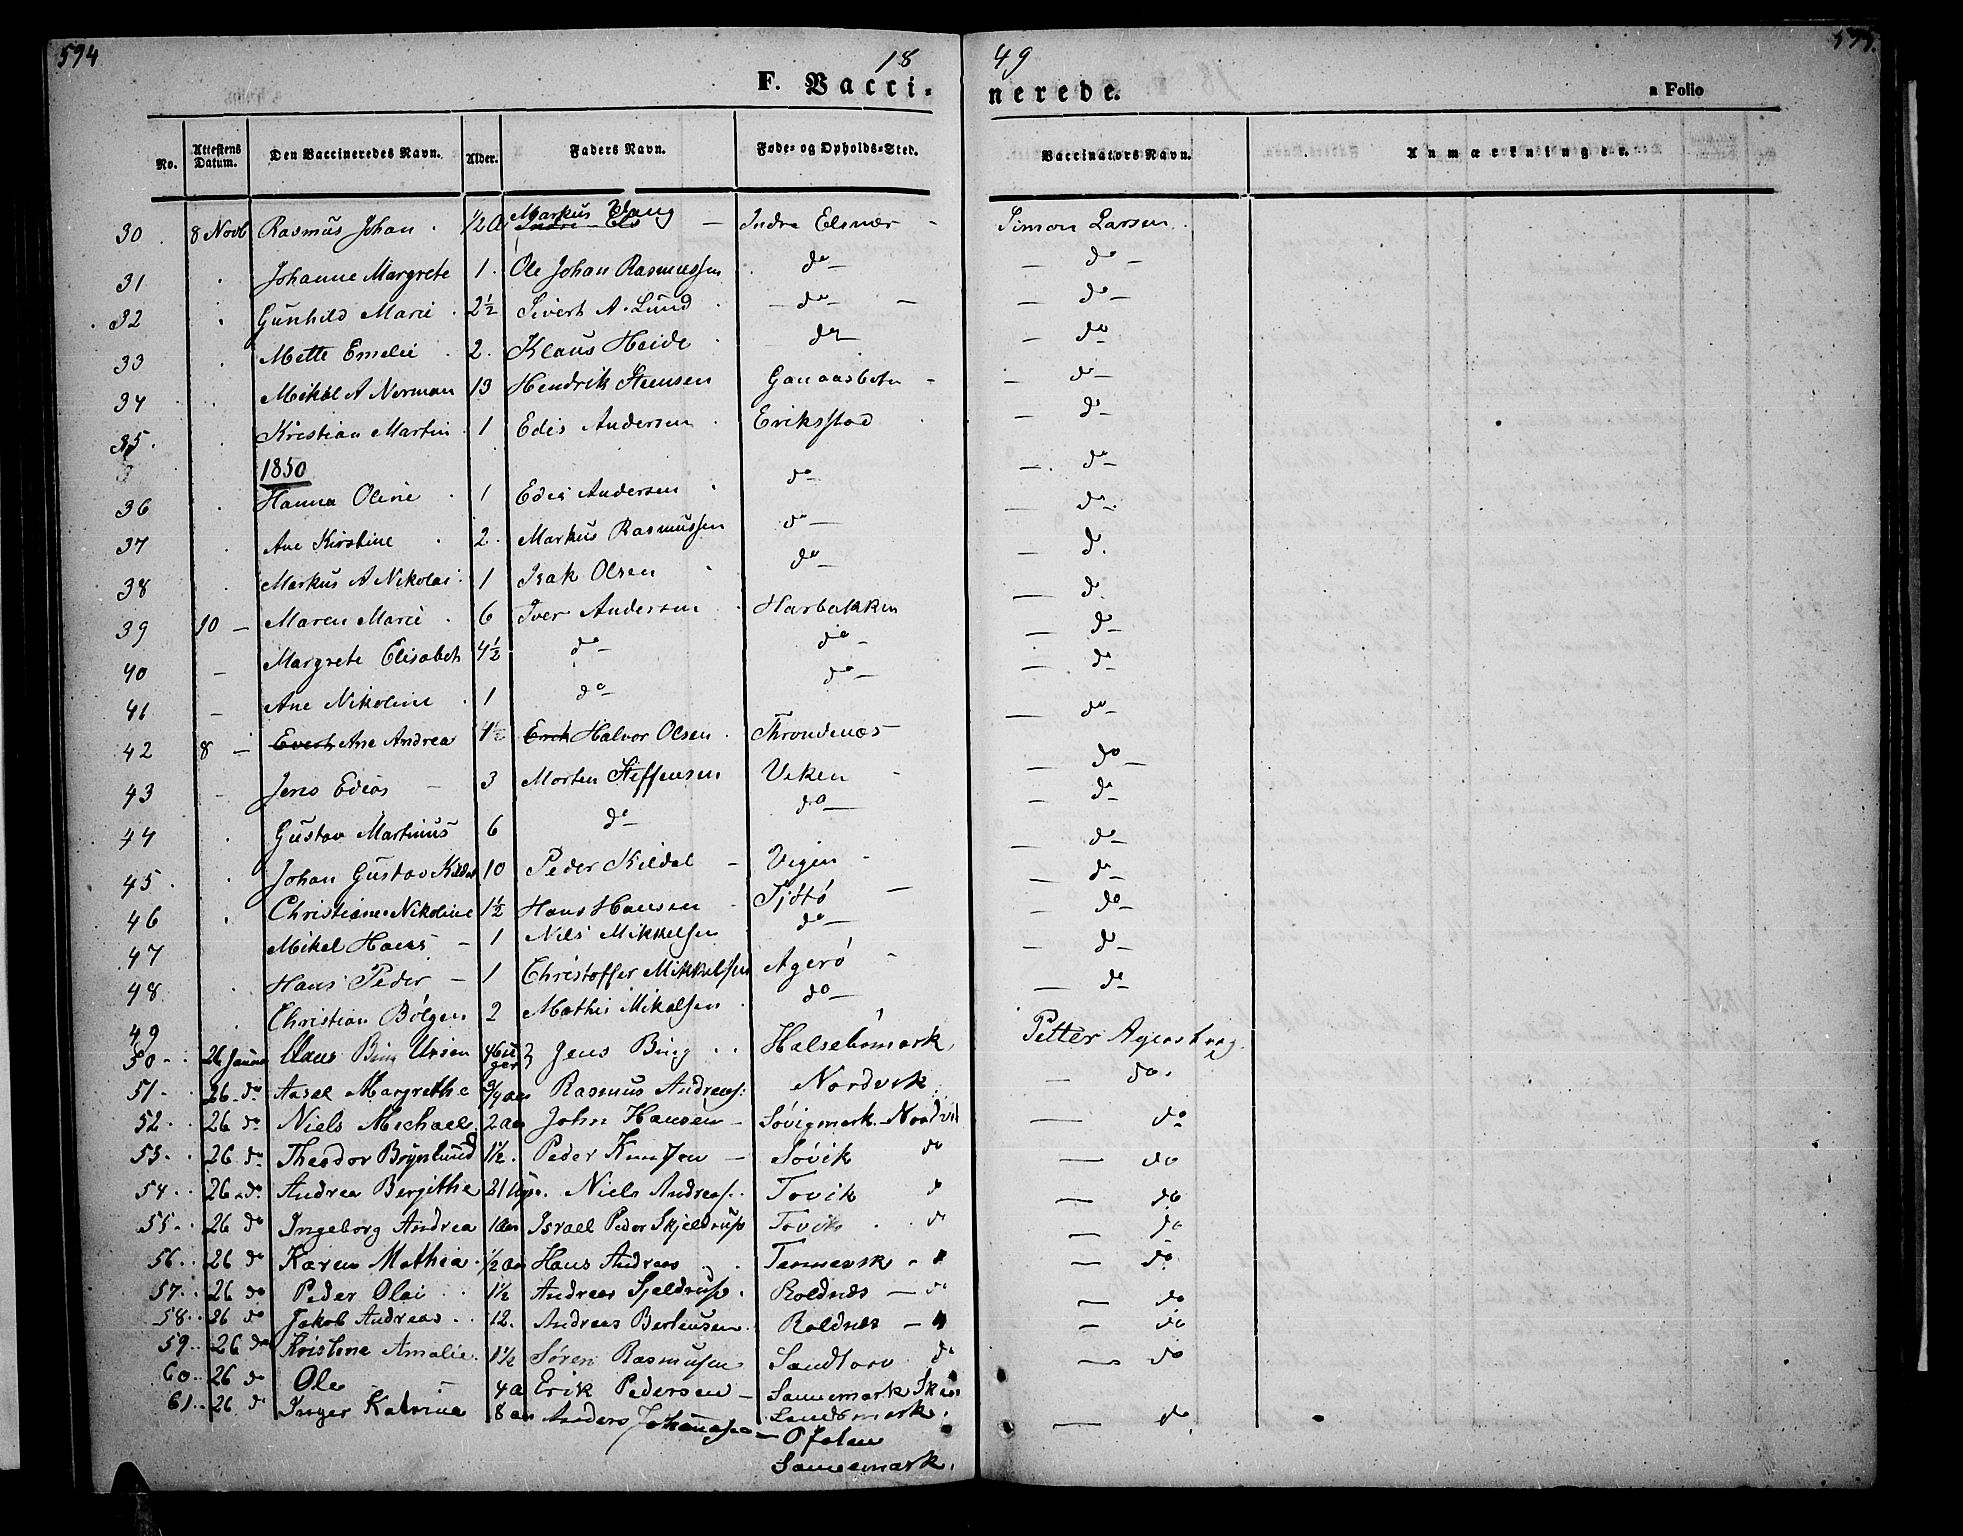 594 18 49 595.
F. Vacci- nerede. a Folio
No. Attestens Datum. Den Vaccineredes Navn. Alder. Faders Navn. Føde- og Opholds-Sted. Vaccinators Navn. Anmærkninger.
30 8 Novb Rasmus Johan 1/2 a Markus Vang Indre Elsnær Simon Larsen
31 Johanne Margrete 1. Ole Johan Rasmussen do do
32 Gunhild Marie 2 1/2 Sivert A. Lund do do
33 Mette Emelie 2. Klaus Heide do do
34 Mikal A Norman 13 Hendrik Steensen Ganaasbotn do
35. Kristian Martin 1 Edis Andersen Eriksstad do
1850
36 Hanna Oline 1 Edis Andersen do do
37 Ane Kirstine 2. Markus Rasmussen do do
38 Markus A Nikolai 1 Isak Olsen do do
39 10 Maren Marie 6 Iver Andersen Harbakken do
40 Margrete Elisabeth 4 1/2 do do do
41 Ane Nikoline 1 do do do
42 8 Evert Ane Andrea 4 1/2 Erik Halvor Olsen Throndenæs do
43 Jens Edias 3 Morten Steffensen Viken do
44 Gustav Martinus 6 do do do
45 Johan Gustav Kildal 10 Peder Kildal Vigen do
46 Christiane Nikoline 1 1/2 Hans Hansen Tjøtø do
47 Mikel Hans 1 Nils Mikkelsen do do
48 Hans Peder 1 Christoffer Mikkelsen Agerø do
49 Christian Bølgen 2 Mathis Mikalsen do do
50 26 Janua Claus Bing Ursin 46 Uger Jens Bing Halsebømark Petter Agersborg
51 26 do Aasel Margrethe 3/4 aar Rasmus Andreas: Nordvik do
52 26 do Niels Mechael 2 aar John Hansen Søvigmark Nordvik do
53 26 do Theodor Brynlund 1 1/2. Peder Knutson Søvik do do
54 26 do Andrea Bergithe 21 Uger. Niels Andreas. Tovik do do
55 26 do Ingeborg Andrea 1 aar Israel Peder Skjeldrup Tovik do do
56 26 do Karen Mathea 1/2 aar Hans Andreas Tennevik do
57 26 do Peder Olai 1 1/2 Andreas Sjeldrup. Roldnæs do do
58 26 do Jakob Andreas 12. Andreas Berteusen. Roldnæs do
59 26 do Kristine Amalie 1 1/2 Søren Rasmusen Sandtorv do do
60 26 do Ole 4 a Erik Pedersen Sannemark
61 26 do Inger Katrine 8 aar Anders Johannesen Sandsmark. do
Ofoten
Sannemark.